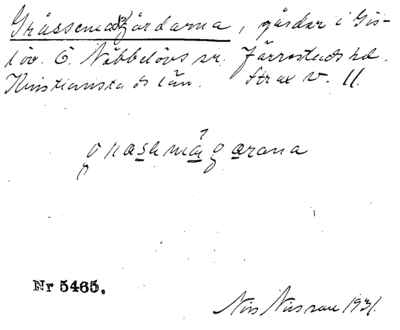 Gråssemadsgårdarna, gårdar i Gis-
löv. Ö. Nöbbelövs sn. Järrestads hd.
Kristianstads län. Strax v. 11.
Nr 5465.
Nils Nilsson 1931.